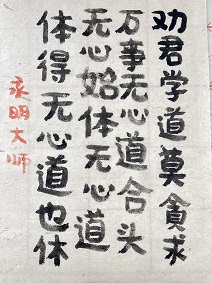 劝君学道莫貪求
万事无心道合头
无心始体无心道
体得无心道也休
永明大师